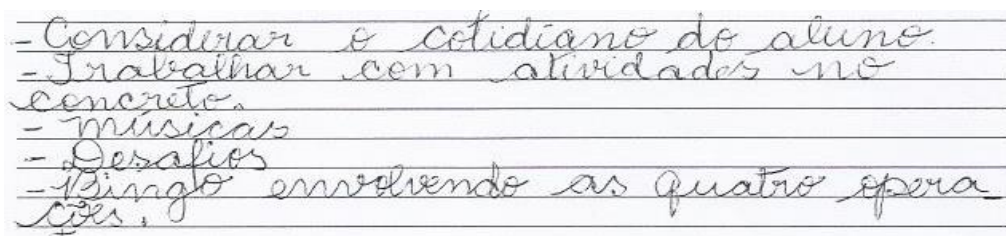 - Considerar o cotidiano do aluno.
- Trabalhar com atividades no
concreto.
- Músicas
- Desafios
- Bingo envolvendo as quatro opera_
ções.